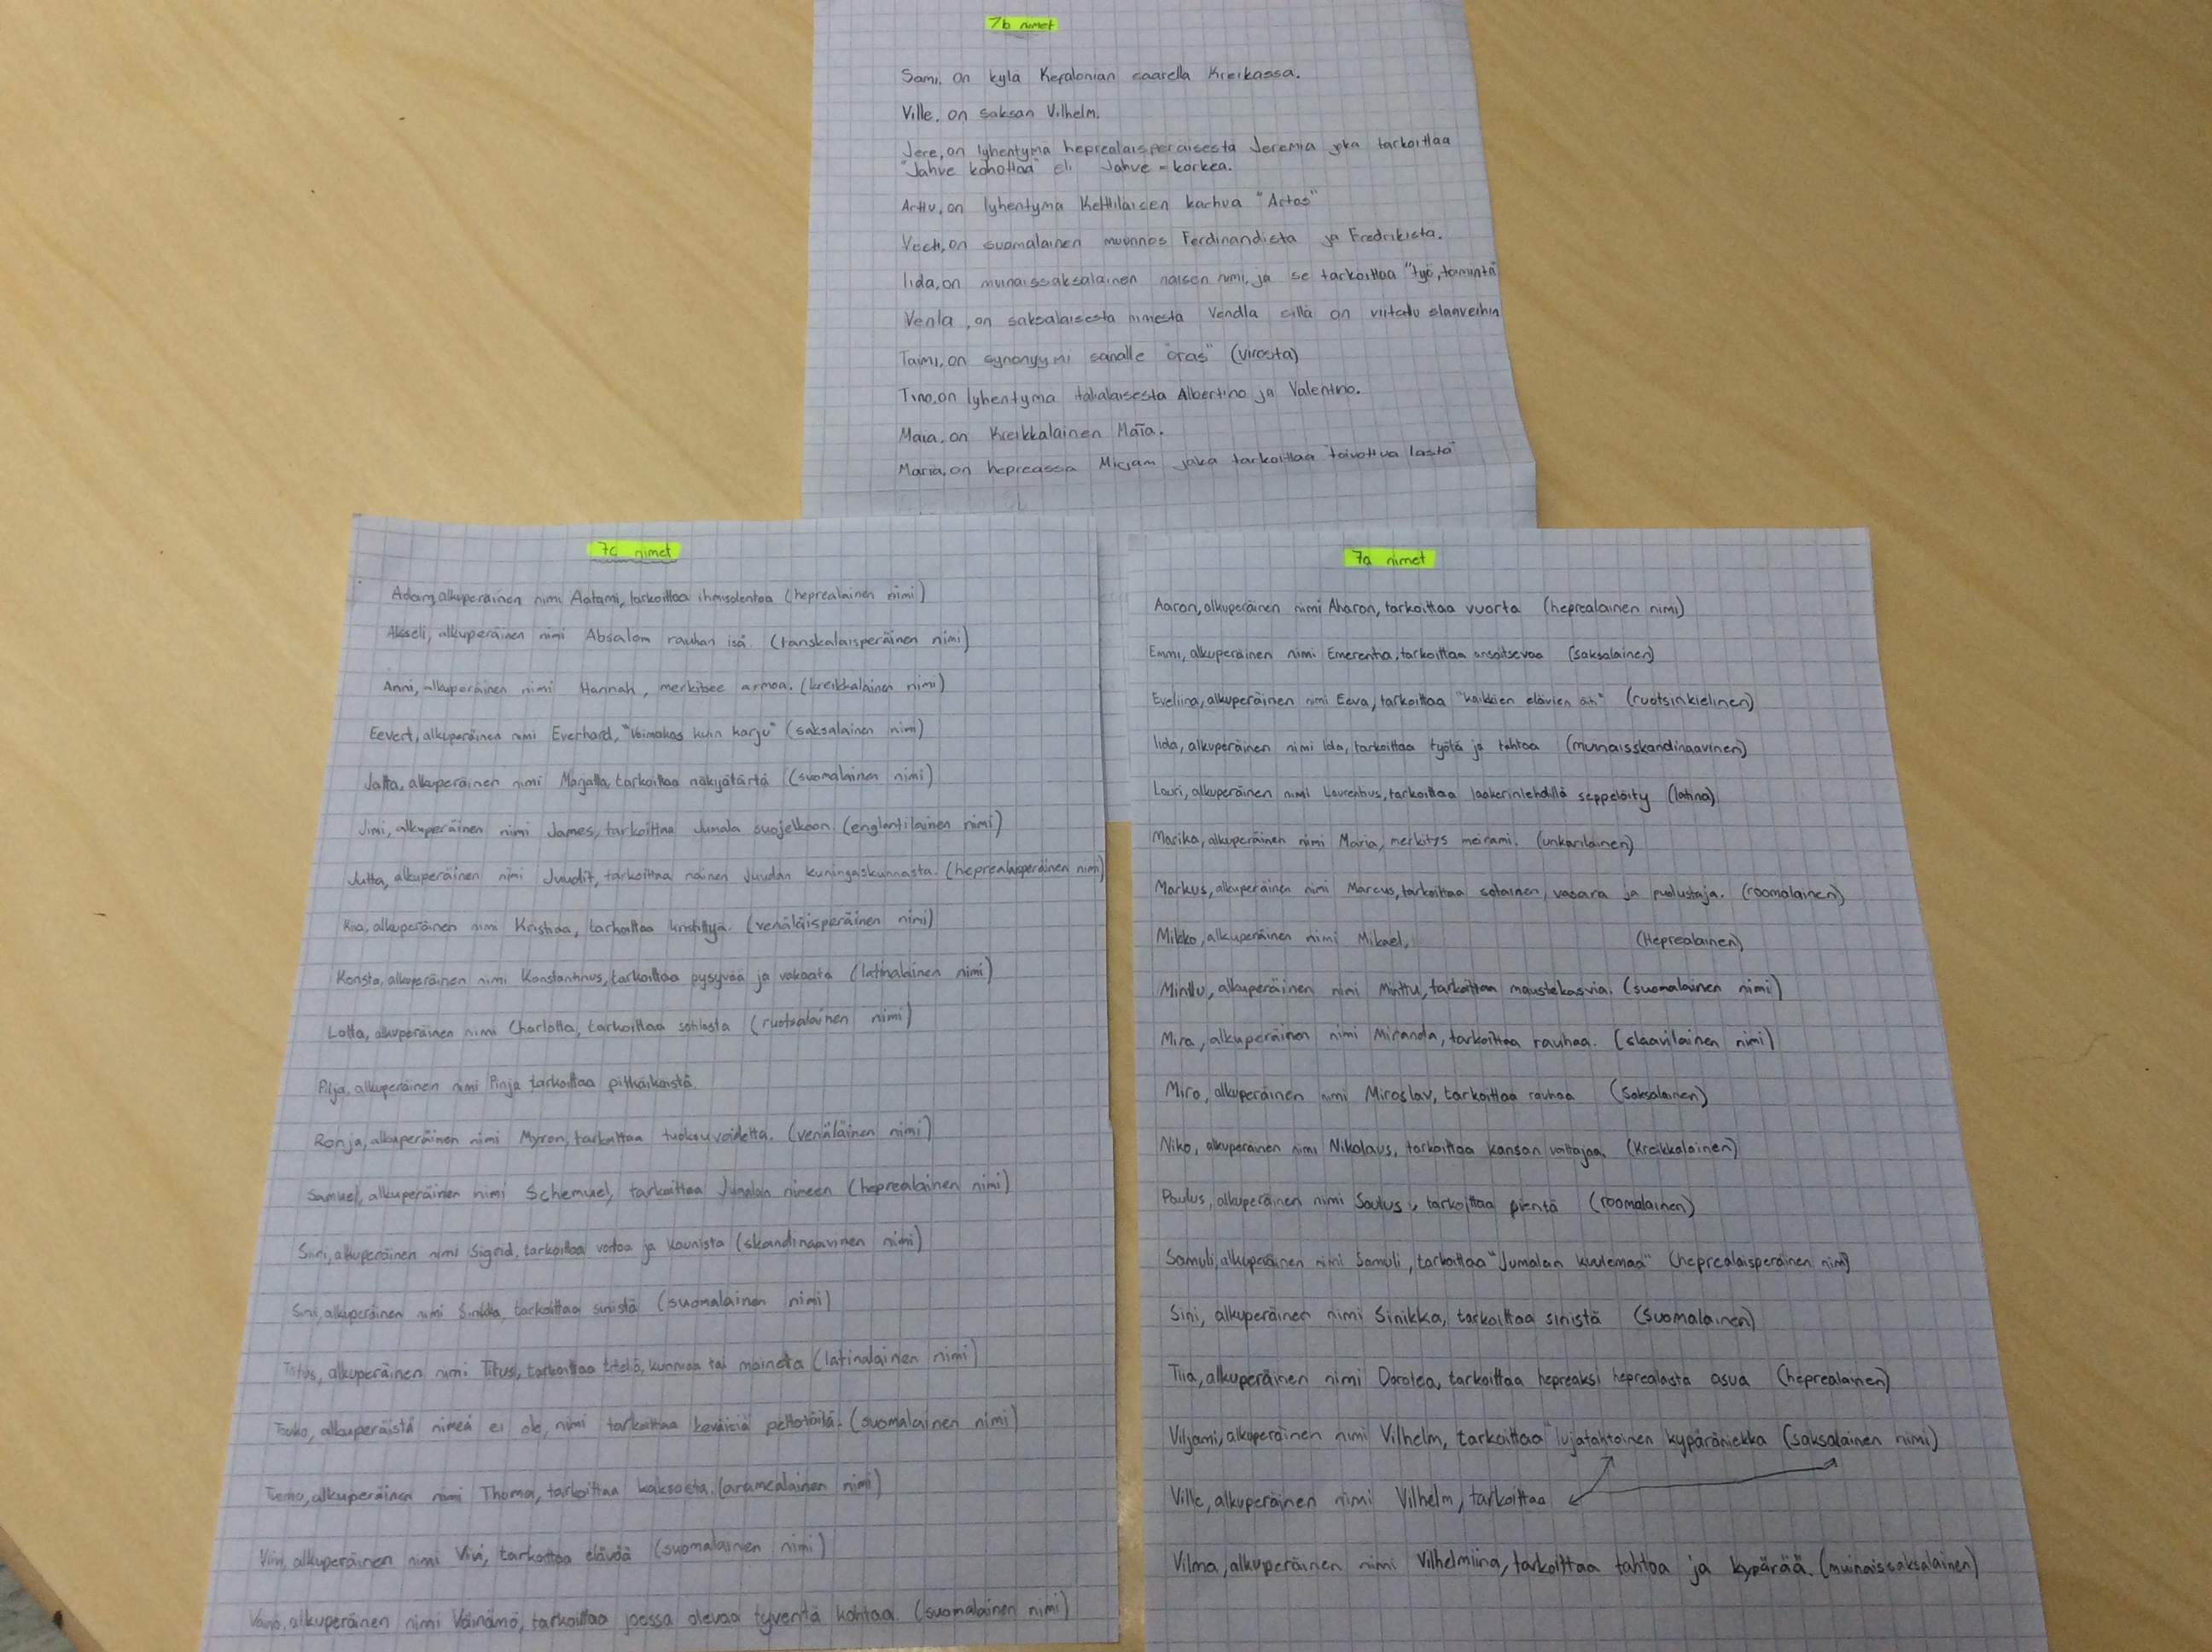 7b nimet
Sami, on kylä Kefalonian saarella Kreikassa.
Ville, on saksan Vilhelm.
Jere, on lyhentymä heprealaisperäisestä Jeremia joka tarkoittaa
"Jahve kohottaa" eli Jahve = korkea.
Arttu, on lyhentymä Kelttiläisen karhua "Artos"
on suomalainen muunnos Ferdinandista ja Fredrikista.
Iida, on muinaissaksalainen naisen nimi, ja se tarkoittaa "työ, toiminta"
Venla, on saksalaisesta nimestä Vendla sillä on viitattu slaaveihin
Taimi, on synonyymi sanalle "oras" (virosta)
Tino, on lyhentymä italialaisesta Albertino ja Valentino.
Maia, on Kreikkalainen Maĩa.
Maria, on hepreassa Mirjam joka tarkoittaa "toivottua lasta"
7c nimet
Adam, alkuperäinen nimi Aatami, tarkoittaa ihmisolentoa (heprealainen nimi)
Akseli, alkuperäinen nimi Absalom rauhan isä. (tanskalaisperäinen nimi)
Anni, alkuperäinen nimi Hannah, merkitsee armoa. (kreikkalainen nimi)
Eevert, alkuperäinen nimi Everhard, "Voimakas kuin karju" (saksalainen nimi)
Jatta, alkuperäinen nimi Marjatta, tarkoittaa näkijätärtä (suomalainen nimi)
Jimi, alkuperäinen nimi James, tarkoittaa Jumala suojelkoon. (englantilainen nimi)
Jutta, alkuperäinen nimi Juudit, tarkoittaa nainen Juudan kuningaskunnasta. (heprealaisperäinen nimi)
Kiia, alkuperäinen nimi Kristiina, tarkoittaa kristittyä. (venäläisperäinen nimi)
Konsta, alkuperäinen nimi Konstantinus, tarkoittaa pysyvää ja vakaata (latinalainen nimi)
Lotta, alkuperäinen nimi Charlotta, tarkoittaa sotilasta (ruotsalainen nimi)
Pilja, alkuperäinen nimi Pinja tarkoittaa pitkäikäistä.
Ronja, alkuperäinen nimi Myron, tarkoittaa tuoksuvoidetta. (venäläinen nimi)
Samuel, alkuperäinen nimi Schemuel, tarkoittaa Jumalan nimeen (heprealainen nimi)
Siiri, alkuperäinen nimi Sigrid, tarkoittaa voitoa ja kaunista (skandinaavinen nimi)
Sini, alkuperäinen nimi Sinikka, tarkoittaa sinistä (suomalainen nimi)
Titus, alkuperäinen nimi Titus, tarkoittaa titteliä, kunniaa tai mainetta (latinalainen nimi)
Touko, alkuperäistä nimeä ei ole, nimi tarkoittaa keväisiä peltotöitä. (suomalainen nimi)
Tuomo, alkuperäinen nimi Thoma, tarkoittaa kaksosta. (aramealainen nimi)
Viivi, alkuperäinen nimi Vivi, tarkoittaa elävää (suomalainen nimi)
Väinö, alkuperäinen nimi Väinämö, tarkoittaa joessa olevaa tyventä kohtaa. (suomalainen nimi)
7a nimet
Aaron, alkuperäinen nimi Aharon, tarkoittaa vuorta (heprealainen nimi)
Emmi, alkuperäinen nimi Emerentia, tarkoittaa ansaitsevaa (saksalainen)
Eveliina, alkuperäinen nimi Eeva, tarkoittaa "kaikkien elävien äiti" (ruotsinkielinen)
Iida, alkuperäinen nimi Ida, tarkoittaa työtä ja tahtoa (muinaisskandinaavinen)
Lauri, alkuperäinen nimi Laurentius, tarkoittaa laakerinlehdillä seppelöity (latina)
Marika, alkuperäinen nimi Maria, merkitys meirami. (unkarilainen)
Markus, alkuperäinen nimi Marcus, tarkoittaa sotainen, vasara ja puolustaja. (roomalainen)
Mikko, alkuperäinen nimi Mikael, (Heprealainen)
Minttu, alkuperäinen nimi Minttu, tarkoittaa maustekasvia. (suomalainen nimi)
Mira, alkuperäinen nimi Miranda, tarkoittaa rauhaa. (slaavilainen nimi)
Miro, alkuperäinen nimi Miroslav, tarkoittaa rauhaa (Saksalainen)
Niko, alkuperäinen nimi Nikolaus, tarkoittaa kansan voittajaa (Kreikkalainen)
Paulus, alkuperäinen nimi Saulus, tarkoittaa pientä (roomalainen)
Samuli, alkuperäinen nimi Samuli, tarkoittaa "Jumalan kuulemaa" (heprealaisperäinen nimi)
Sini, alkuperäinen nimi Sinikka, tarkoittaa sinistä (Suomalainen)
Tiia, alkuperäinen nimi Dorotea, tarkoittaa hepreaksi heprealaista asua (heprealainen)
Viljami, alkuperäinen nimi Vilhelm, tarkoittaa "lujatahtoinen kypäräniekka (saksalainen nimi)
Ville, alkuperäinen nimi Vilhelm, tarkoittaa
Vilma, alkuperäinen nimi Vilhelmiina, tarkoittaa tahtoa ja kypärää. (muinaissaksalainen)